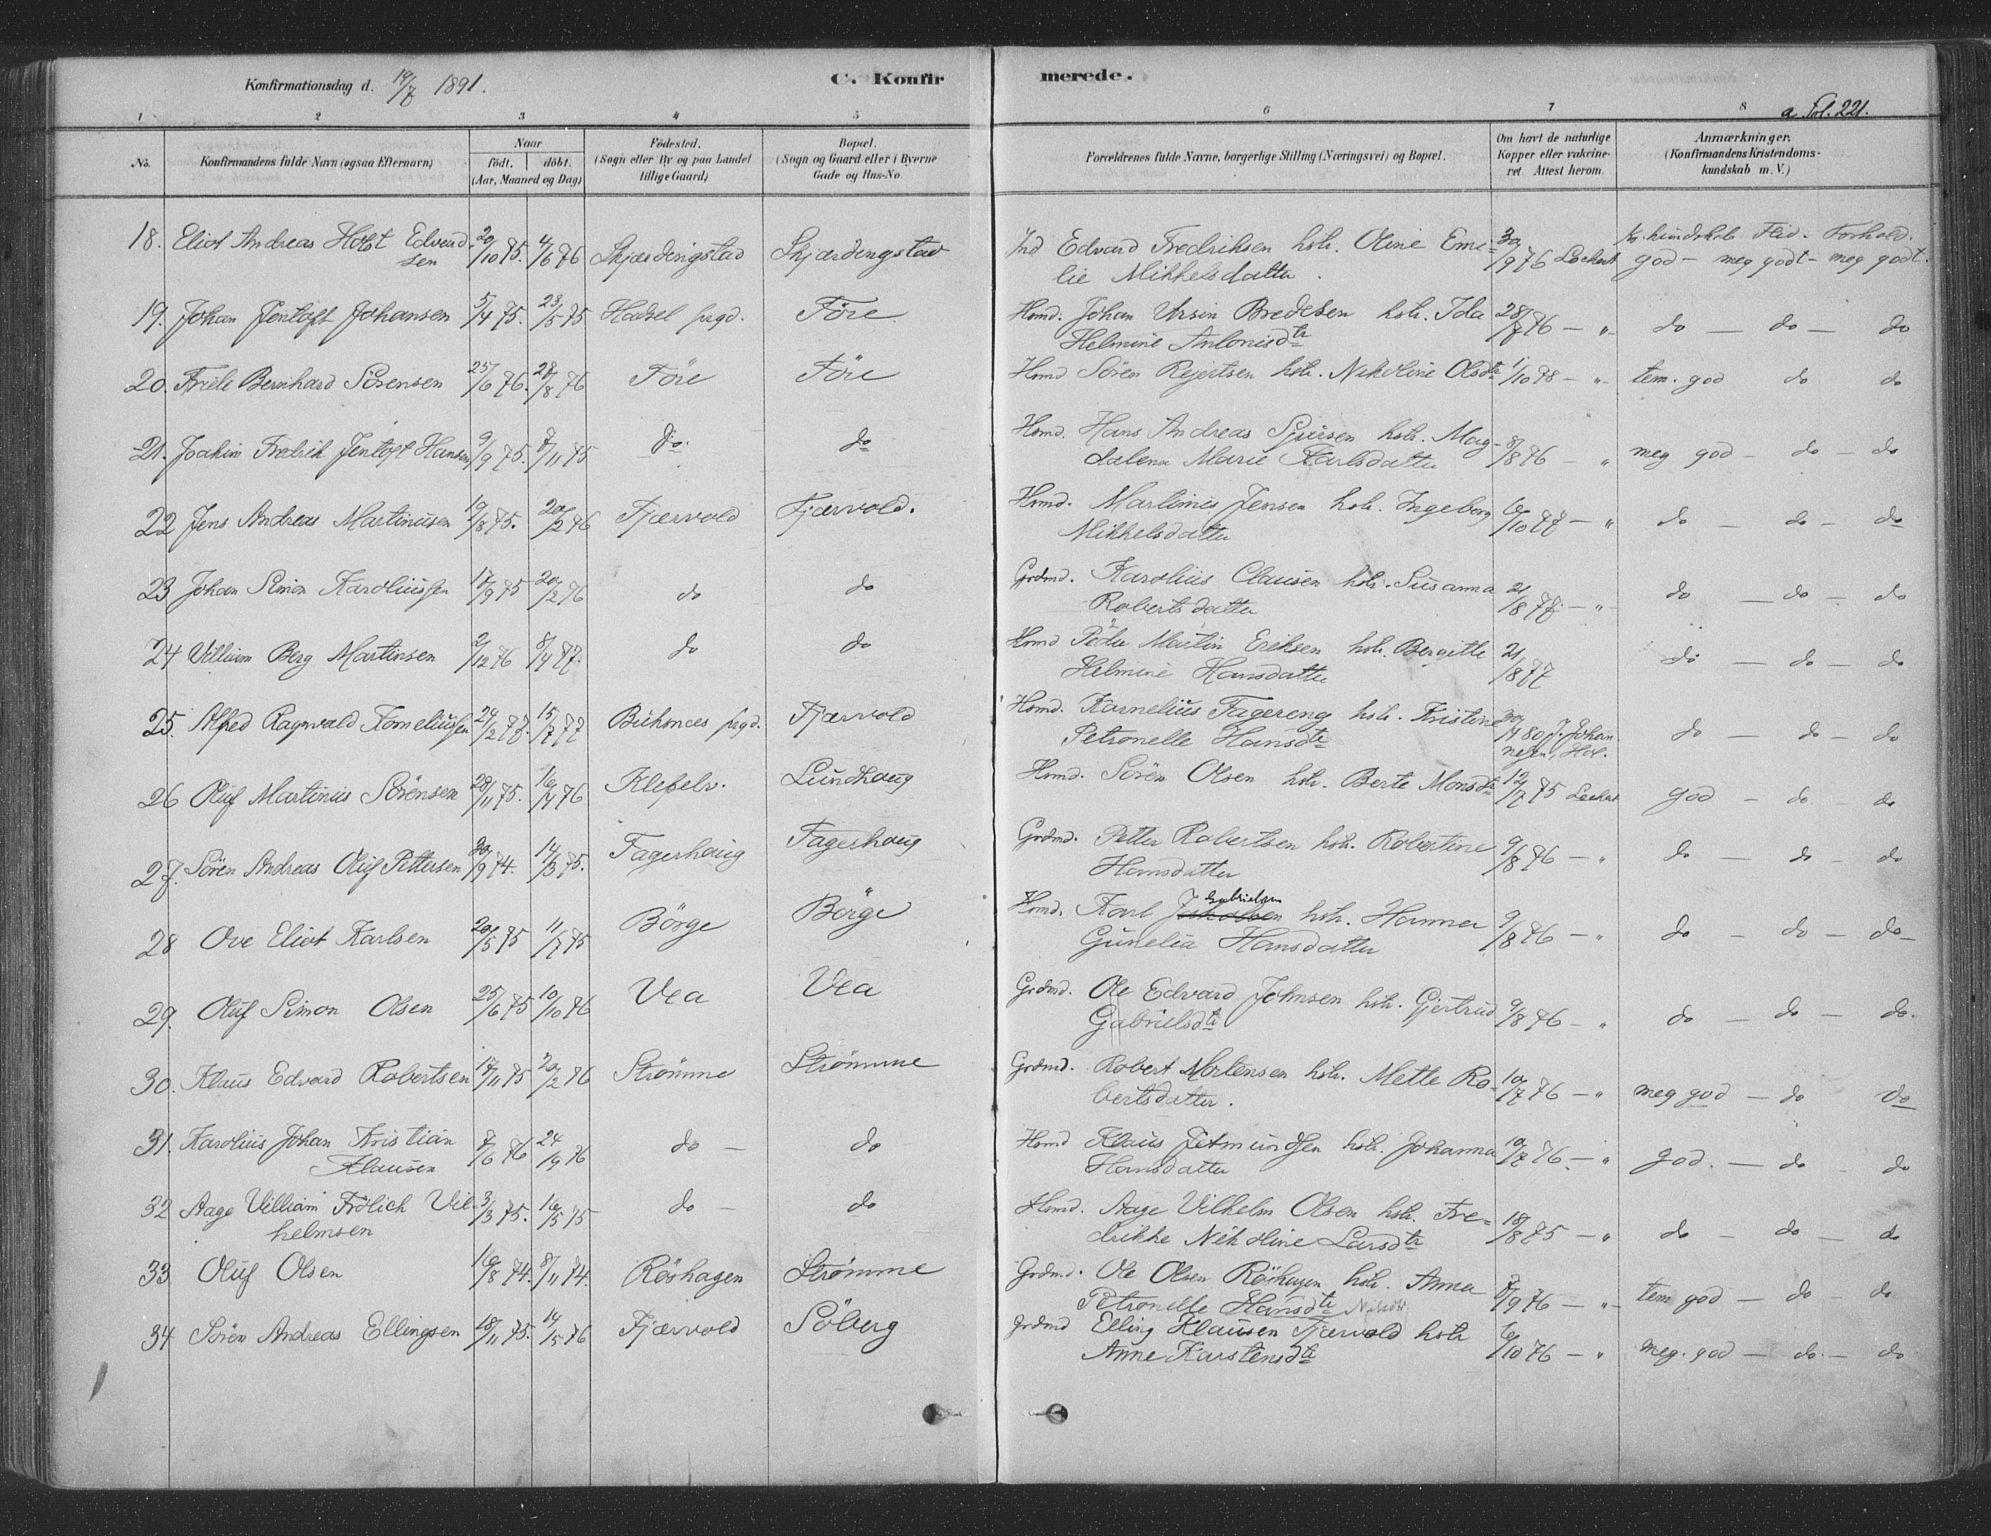 Konfirmationsdag d. 19/7 1891.
C. Konfirmerede.
a. Fol. 221.
1 2 3 4 5 6 7 8
No.
Konfirmandens fulde Navn (ogsaa Efternavn)
Naar
födt. döbt.
(Aar, Maaned og Dag)
Födested.
(Sogn eller By og paa Landet
tillige Gaard)
Bopæl.
(Sogn og Gaard eller i Byerne
Gade og Hus-No.
Forældrenes fulde Navne, borgerlige Stilling (Næringsvei) og Bopæl.
Om havt de naturlige
Kopper eller vakcineret.
Attest herom.
Anmærkninger.
(Konfirmandens Kristendomskundskab
m. V.)
Kr. kundskab Flid. Forhold.
18. Eliot Andreas Holst Edvardsen 20/10 75. 4/6 76 Skjærdingstad Skjærdingstad Ind Edvard Fredriksen hstr. Oline Emilie Mikkelsdatter. 30/9 76 Lockert god — meg godt — meg godt.
19. Johan Jentoft Johansen 5/4 75. 23/5 75 Hadsel prgd. Före Hmd. Johan Ursin Bredesen hstr. Ida Helmine Antonisdtr 28/7 76 — " do — do — do
20. Friele Bernhard Sörensen 25/6 76. 28/8 76 Före Före Hmd Sören Rejertsen hstr. Nikoline Olsdtr 1/10 78 — " tem. god do do
21. Joakim Fredrik Jentoft Hansen 9/9 75. 7/11 75 do. do Hmd. Hans Andreas Sjursen hstr. Magdalena Marie Karlsdatter 8/8 76 — " meg god — do — do
22 Jens Andreas Martinusen 19/8 75. 20/2 76 Fjærvold Fjærvold. Hmd. Martinus Jensen hstr. Ingeborg Mikkelsdatter 6/10 77 — " do — do — do
23 Johan Simon Karoliussen 17/9 75 20/2 76 do do Grdmd. Karolius Clausen hstr. Susanna Robertsdatter 21/8 77 — " do — do — do
24 Villiam Berg Martinsen 2/12 76 8/4 77. do do Hmd Peder Martin Eriksen hstr. Bergitte Helmine Hansdatter 21/8 77 do — do — do
25. Alfred Ragnvald Korneliussen 24/2 77. 15/7 77 Buksnes prgd. Fjærvold Hmd. Kornelius Fagereng hstr. Kristine Petronelle Hansdtr 30/4 80 J. Johannesen, Hol. do — do — do
26 Oluf Martinus Sörensen 28/11 75. 16/4 76 Klepelv. Lundhaug Hmd. Sören Olsen hstr. Berte Monsdtr 12/7 75 Lockert god — do — do
27. Sören Andreas Oluf Pettersen 30/9 74. 14/3 75. Fagerhaug Fagerhaug Grdmd. Petter Robertsen hstr. Robertine Hansdatter 9/8 76 — " do — do — do
28 Ove Eliot Karlsen 20/5 75 11/7 75 Börge Börge Hmd. Karl Gabrielsen hstr. Hanna Gunelia Hansdatter 9/8 76 — " do — do — do —
29. Oluf Simon Olsen 25/6 75 10/10 76 Vea Vea Grdmd. Ole Edvard Johnsen hstr. Gjertrud Gabrielsdtr 9/8 76 — " do — do — do.
30. Klaus Edvard Robertsen 17/11 75 20/2 76 Strømme Strømme Grdmd. Robert Mortensen hstr. Mette Robertsdatter. 10/7 76 — " meg god — do do
31. Karolius Johan Kristian Klausen 7/6 76 24/9 76 do — do Hmd Klaus Jetmundsen hstr. Johanna Hansdatter 10/7 76. — " god. — do — do
32 Aage Villiam Frölich Vilhelmsen 3/3 75. 16/5 75 do — do Hmd. Aage Vilhelm Olsen hstr. Fredrikke Nikoline Larsdtr 18/8 75 — " do — do — do
33 Oluf Olsen 16/8 74. 8/11 74. Röshagen Strømme Grdmd. Ole Olsen Röshagen hstr. Anna Petronelle Hansdtr 7/9 76 — " tem god — do — do
34 Sören Andreas Ellingsen 18/11 75. 14/5 76 Fjærvold Söberg Grdmd Elling Klausen Fjærvold hstr Anne Karstensdtr 6/10 76 — " meg. god — do — do